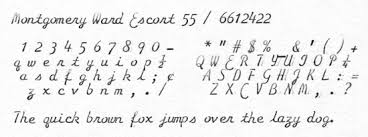 Montgomery Ward Escort 55 / 6612422
1 2 3 4 5 6 7 8 9 0 - * " # $ % & ' ( ) +
q w e r t y u i o p ½ Q W E R T Y U I O P ¼
a s d f g h j k l ; ¢ A S D F G H J K L : =
z x c v b n m , . / Z X C V B N M , . ?
The quick brown fox jumps over the lazy dog.